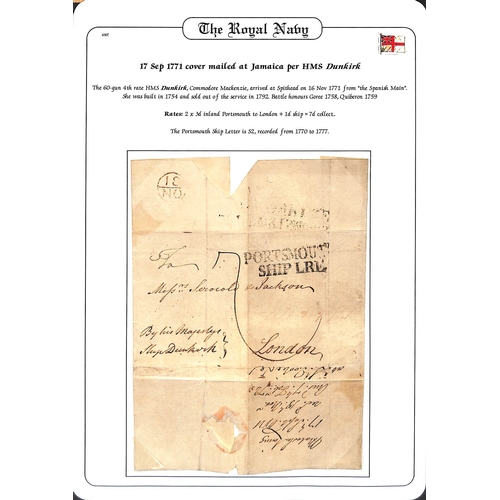 The Royal Navy
17 Sep 1771 cover mailed at Jamaica per HMS Dunkirk
The 60-gun 4th rate HMS Dunkirk, Commodore Mackenzie, arrived at Spithead on 16 Nov 1771 from "the Spanish Main".
She was built in 1754 and sold out of the service in 1792. Battle honours Goree 1758, Quiberon 1759
Rates: 2 x 3d inland Portsmouth to London + 1d ship = 7d collect.
The Portsmouth Ship Letter is S2, recorded from 1770 to 1777.
18
NO
PORTSMOUT
SHIP LRE
To
Mess.rs & Jackson
By his Majestys
Ship Dunkirk
London